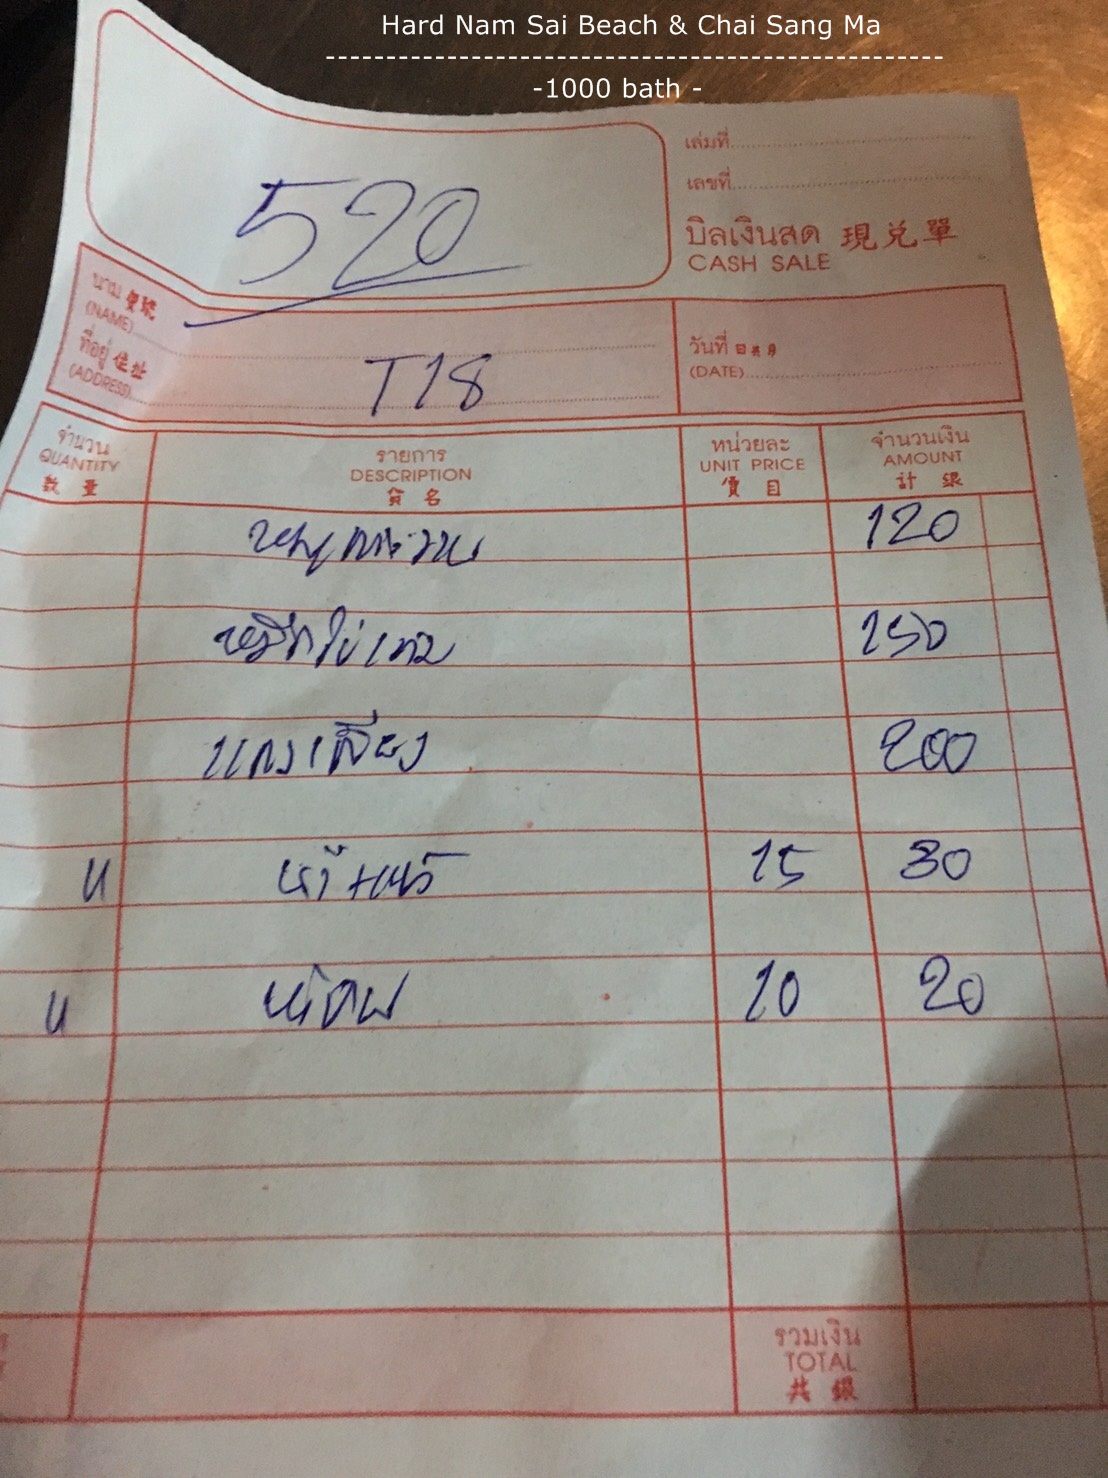 Hard Nam Sai Beach & Chai Sang Ma
-1000 bath -
520
เล่มที่
เลขที่
บิลเงินสด 現兌單
CASH SALE
นาม 寶號
(NAME)
ที่อยู่ 住址
(ADDRESS)
T18
วันที่ 日期
(DATE)
จำนวน รายการ หน่วยละ จำนวนเงิน
QUANTITY DESCRIPTION UNIT PRICE AMOUNT
數量 貨名 價目 計銀
120
150
แกงเลียง 200
15 30
10 20
รวมเงิน
TOTAL
共銀